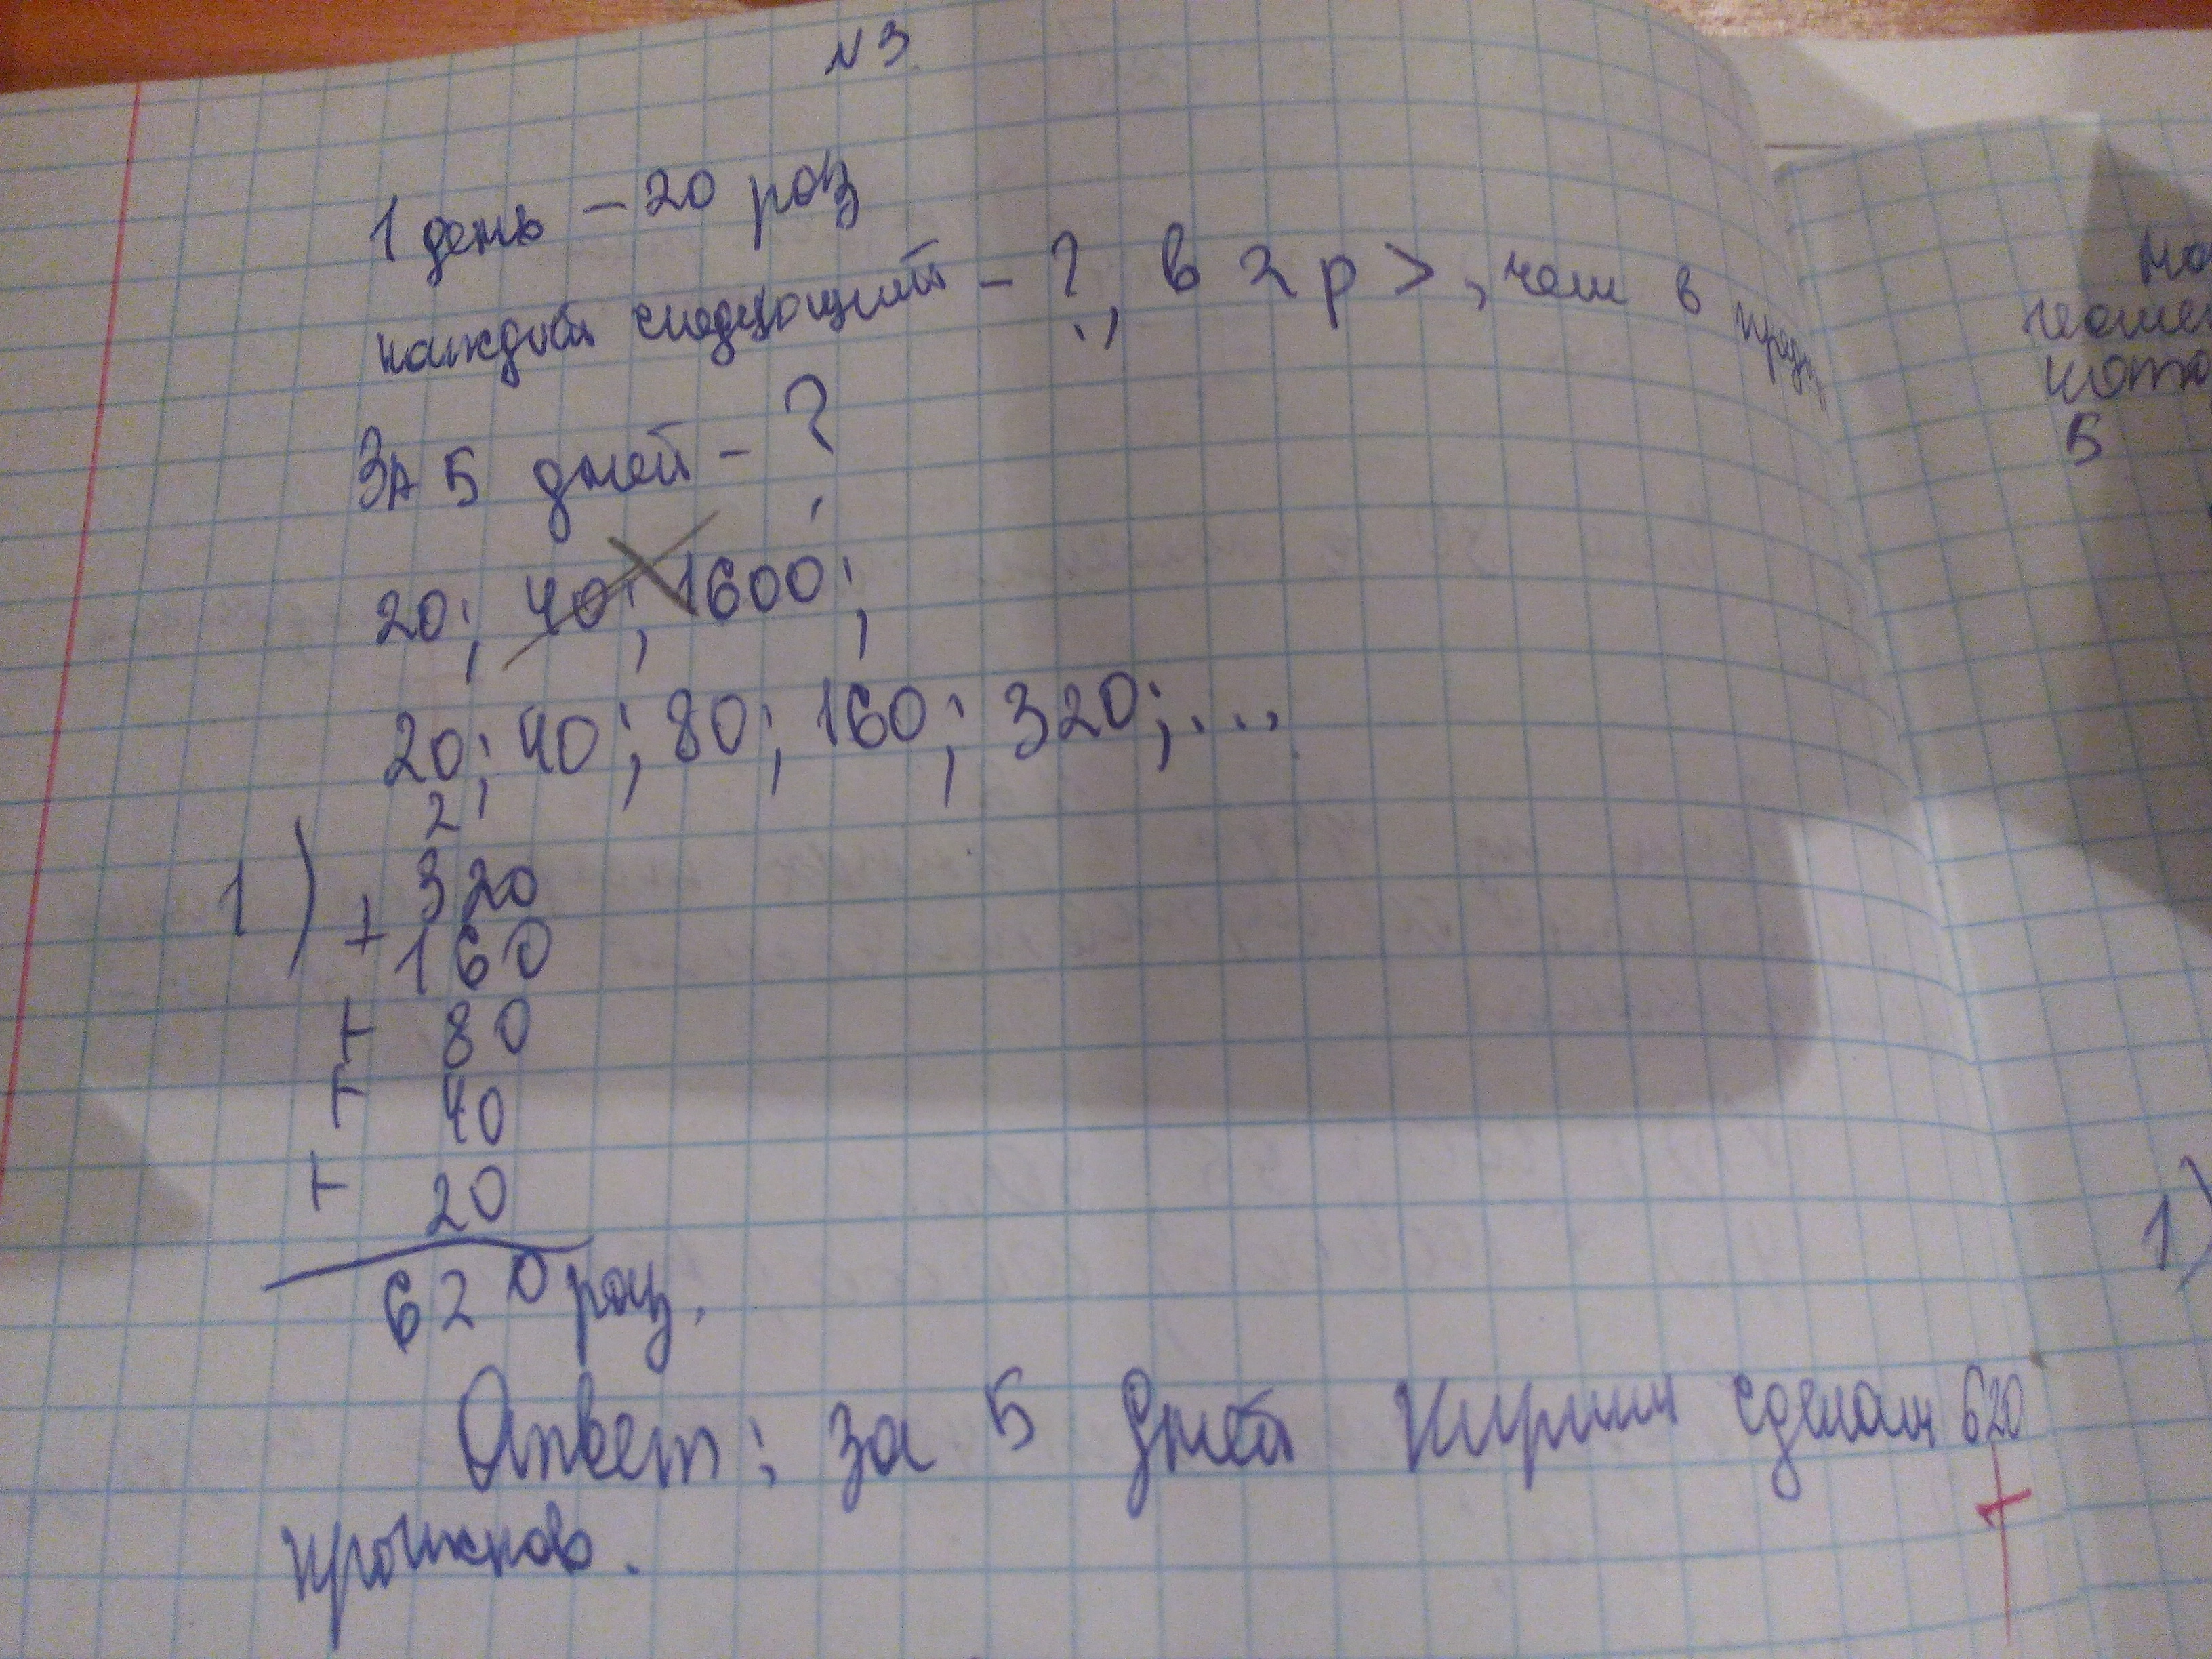 N3
1 день – 20 раз
каждый следующий – ?, в 2 р >, чем в пред
За 5 дней – ?
20; 40; 1600;
20; 40; 80; 160; 320; ...
2
1) + 320
+ 160
+ 80
+ 40
+ 20
620 раз.
Ответ: за 5 дней Кирилл сделал 620
прыжков.
5
1)